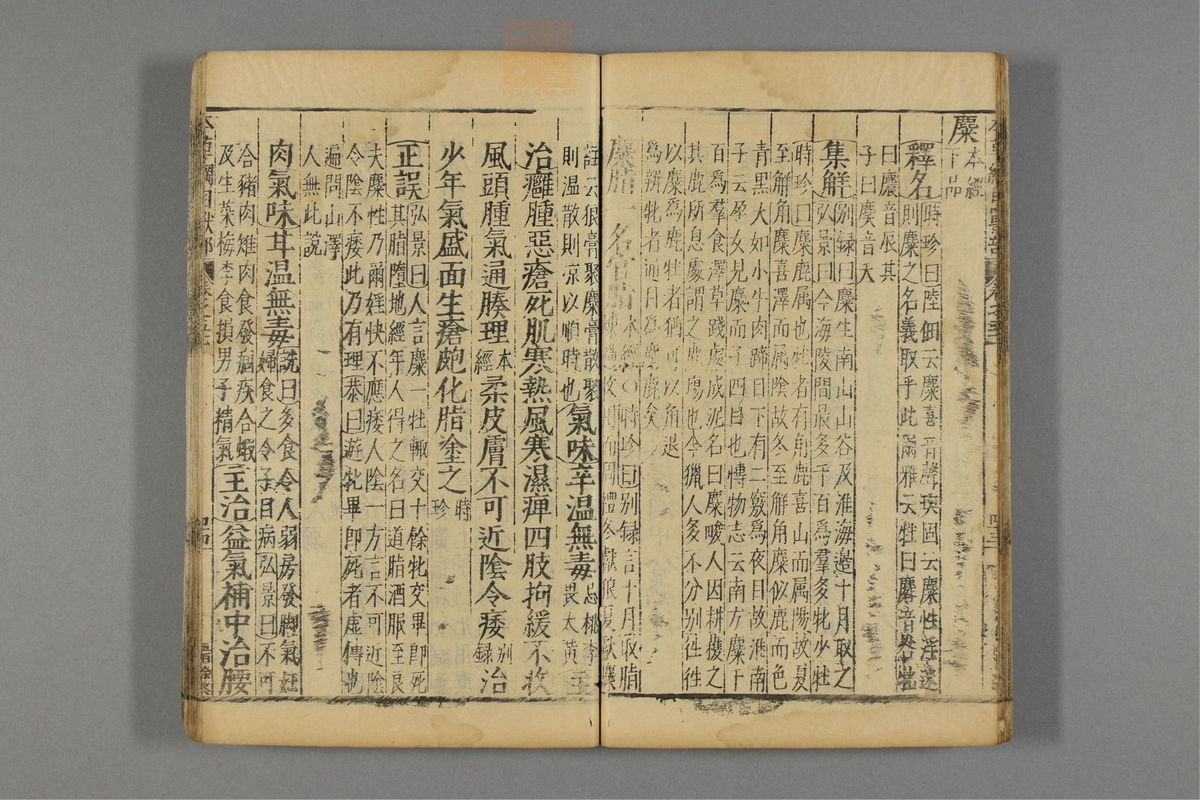 麋本經下品
釋名時珍曰陸佃云麋喜音聲班固云麋性淫迷
則麋之名義取乎此爾雅云牡曰麔音咎牝
曰麎音辰其
子曰䴠音夭
集解別録曰麋生南山山谷及淮海邉十月取之
弘景曰今海陵間最多千百爲羣多牝少牡
時珍曰麋鹿属也牡者有角鹿喜山而属陽故夏
至解角麋喜澤而属陰故冬至解角麋似鹿而色
青黑大如小牛肉蹄目下有二竅爲夜目故淮南
子云孕女見麋而子四目也博物志云南方麋千
百爲羣食澤草踐處成泥名曰麋畯人因耕穫之
其鹿所息處謂之鹿塲也今獵人多不分别往往
以麋爲鹿牡者猶可以角退
爲辨牝者通目爲麀鹿矣
麋脂一名宫脂本經〇時珍曰别録言十月取脂
註云狼膏聚麋膏散聚
則温散則凉以順時也氣味辛温無毒忌桃李畏大黄
治癰腫惡瘡死肌寒熱風寒濕痺四肢拘緩不收
風頭腫氣通腠理本經柔皮膚不可近陰令痿别録治
少年氣盛面生瘡皰化脂塗之時珍
正誤弘景曰人言麋一牡輒交十餘牝交畢即死
其脂墮地經年人得之名曰遁脂酒服至良
夫麋性乃爾婬快不應痿人陰一方言不可近陰
令陰不痿此乃有理恭曰遊牝畢即死者虚傳也
遍問山澤
人無此說
肉氣味甘温無毒詵曰多食令人弱房發脚氣妊
婦食之令子目病弘景曰不可
合豬肉雉肉食發痼疾合蝦
及生菜梅李食損男子精氣主治益氣補中治腰